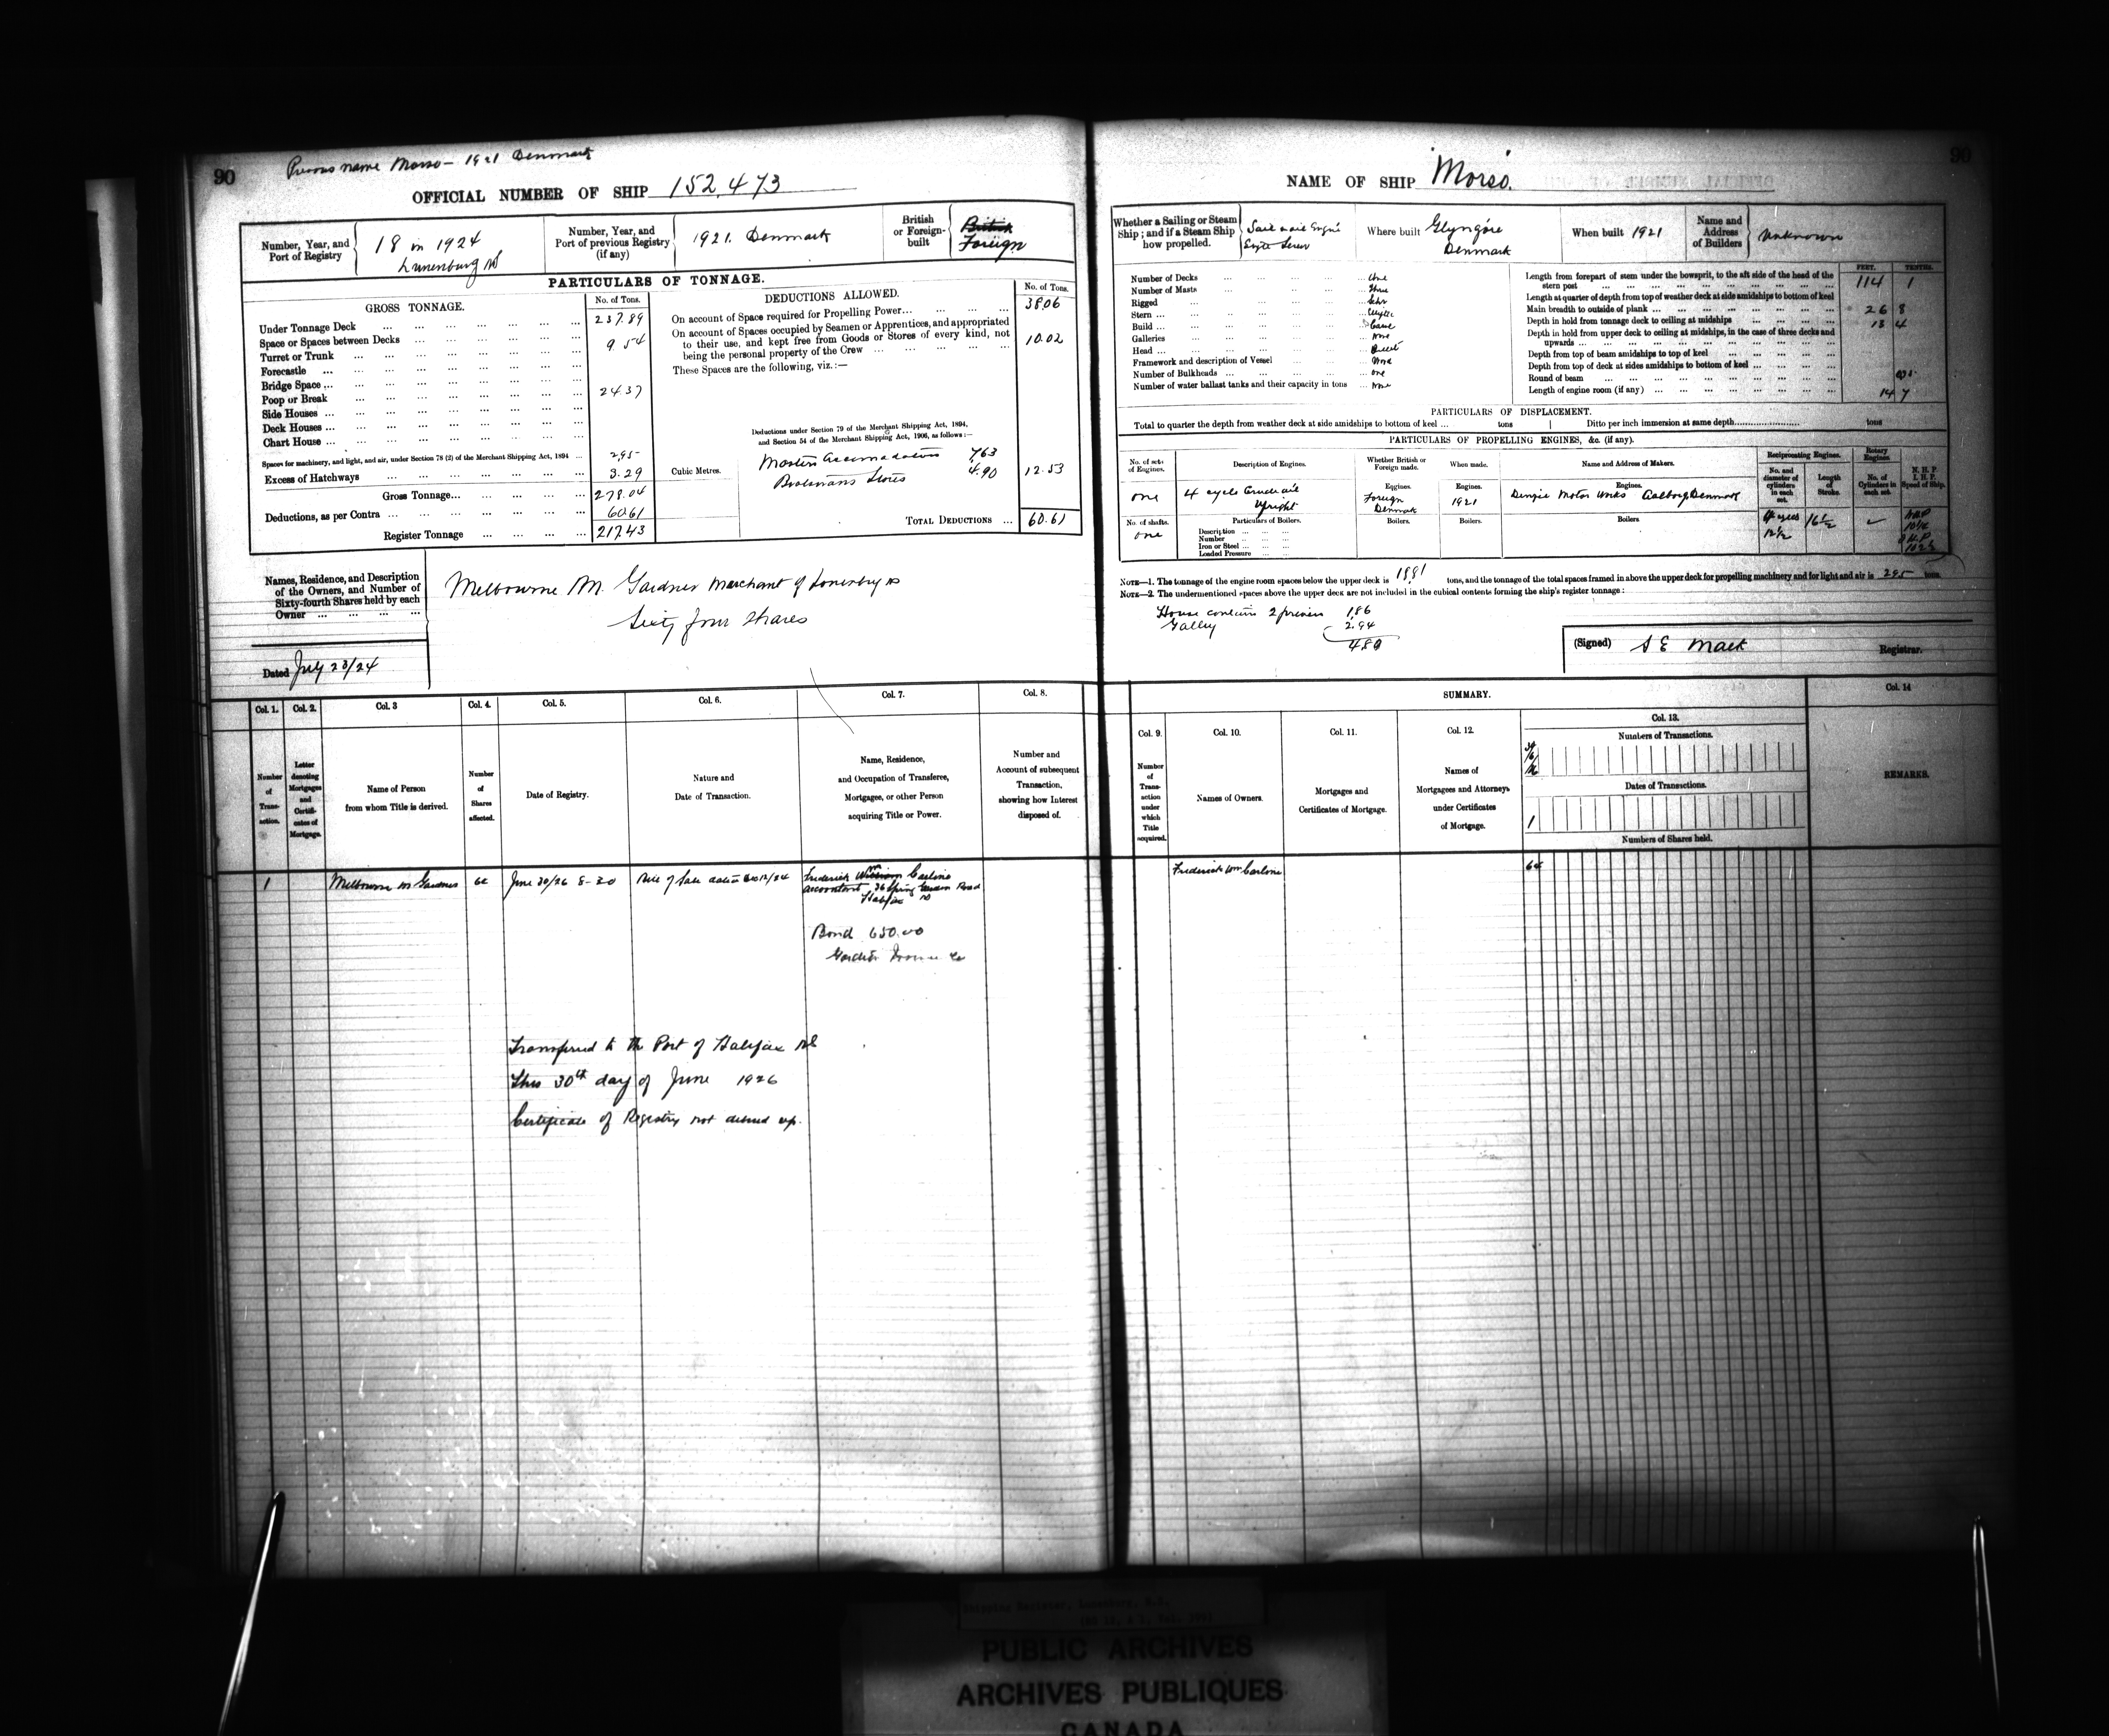 90
Previous name Morso - 1921 Denmark
OFFICIAL NUMBER OF SHIP 152,473
Number, Year, and Port of Registry
18 in 1924
Lunenburg NS
Number, Year, and Port of previous Registry (if any)
1921. Denmark
British or Foreign-built
British
Foreign
PARTICULARS OF TONNAGE.
GROSS TONNAGE. No. of Tons.
Under Tonnage Deck 237.89
Space or Spaces between Decks 9.54
Turret or Trunk
Forecastle
Bridge Space
Poop or Break 24.37
Side Houses
Deck Houses
Chart House
Spaces for machinery, and light, and air, under Section 78 (2) of the Merchant Shipping Act, 1894 2.95
Excess of Hatchways 3.29
Gross Tonnage 278.04
Deductions, as per Contra 60.61
Register Tonnage 217.43
DEDUCTIONS ALLOWED. No. of Tons.
On account of Space required for Propelling Power 38.06
On account of Spaces occupied by Seamen or Apprentices, and appropriated
to their use, and kept free from Goods or Stores of every kind, not
being the personal property of the Crew 10.02
These Spaces are the following, viz.:—
Deductions under Section 79 of the Merchant Shipping Act, 1894,
and Section 54 of the Merchant Shipping Act, 1906, as follows:—
Cubic Metres.
Masters Accomadation 7.63
Boatswains Stores 4.90 12.53
TOTAL DEDUCTIONS 60.61
Names, Residence, and Description
of the Owners, and Number of
Sixty-fourth Shares held by each
Owner
Melbourne M. Gardner Merchant of Lunenburg NS
Sixty four Shares
Dated July 23/24
Col. 1. Col. 2. Col. 3 Col. 4. Col. 5. Col. 6. Col. 7. Col. 8.
Number of Transaction.
Letter denoting Mortgages and Certificates of Mortgage.
Name of Person from whom Title is derived.
Number of Shares affected.
Date of Registry.
Nature and Date of Transaction.
Name, Residence, and Occupation of Transferee, Mortgagee, or other Person acquiring Title or Power.
Number and Account of subsequent Transaction, showing how Interest disposed of.
1 Melbourne M Gardner 64 June 30/26 8-30 Bill of Sale dated
Frederick William
Accountant 36 Spring Garden Road
Halifax NS
Bond 650.00
Transferred to the Port of Halifax NS
this 30th day of June 1926
Certificate of Registry not delivered up.
90
NAME OF SHIP "Morso.
Whether a Sailing or Steam Ship; and if a Steam Ship how propelled.
Engine
Single Screw
Where built Glyngöre
Denmark
When built 1921
Name and Address of Builders
Unknown
Number of Decks One
Number of Masts Three
Rigged Schr
Stern
Build
Galleries None
Head
Framework and description of Vessel Wood
Number of Bulkheads one
Number of water ballast tanks and their capacity in tons none
FEET. TENTHS.
Length from forepart of stem under the bowsprit, to the aft side of the head of the
stern post 114 1
Length at quarter of depth from top of weather deck at side amidships to bottom of keel
Main breadth to outside of plank 26 8
Depth in hold from tonnage deck to ceiling at midships 13 4
Depth in hold from upper deck to ceiling at midships, in the case of three decks and
upwards
Depth from top of beam amidships to top of keel
Depth from top of deck at sides amidships to bottom of keel
Round of beam
Length of engine room (if any) 14 7
PARTICULARS OF DISPLACEMENT.
Total to quarter the depth from weather deck at side amidships to bottom of keel tons Ditto per inch immersion at same depth tons
PARTICULARS OF PROPELLING ENGINES, &c. (if any).
No. of sets of Engines.
Description of Engines.
Whether British or Foreign made.
When made.
Name and Address of Makers.
Reciprocating Engines.
No. and diameter of cylinders in each set.
Length of Stroke.
Rotary Engines.
No. of Cylinders in each set.
N. H. P.
I. H. P.
Speed of Ship.
Engines. Engines. Engines.
one 4 cycle Crude oil Foreign 1921 Motor Works Aalborg Denmark
Upright Denmark
No. of shafts. Particulars of Boilers. Boilers. Boilers. Boilers.
one Description
Number
Iron or Steel
Loaded Pressure
16½
NOTE—1. The tonnage of the engine room spaces below the upper deck is tons, and the tonnage of the total spaces framed in above the upper deck for propelling machinery and for light and air is 2.95 tons.
NOTE—2. The undermentioned spaces above the upper deck are not included in the cubical contents forming the ship's register tonnage:
House contains 2 1.86
Galley 2.94
(Signed) S E Mack Registrar.
SUMMARY.
Col. 9. Col. 10. Col. 11. Col. 12. Col. 13. Col. 14
Number of Transaction under which Title acquired.
Names of Owners.
Mortgages and Certificates of Mortgage.
Names of Mortgagees and Attorneys under Certificates of Mortgage.
Numbers of Transactions.
Dates of Transactions.
1
Numbers of Shares held.
REMARKS.
Frederick Wm 64
PUBLIC ARCHIVES
ARCHIVES PUBLIQUES
CANADA